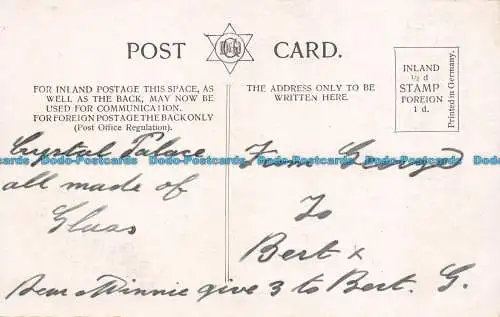 POST CARD.
FOR INLAND POSTAGE THIS SPACE, AS
WELL AS THE BACK, MAY NOW BE
USED FOR COMMUNICATION.
FOR FOREIGN POSTAGE THE BACK ONLY
(Post Office Regulation).
THE ADDRESS ONLY TO BE
WRITTEN HERE.
INLAND
½ d
STAMP
FOREIGN
1 d.
Printed in Germany.
Crystal Palace
all made of
Glass
From George
To
Bert x
Dear Minnie give 3 to Bert. G.
Dodo-Postcards Dodo-Postcards Dodo-Postcards Dodo-Postcards Dodo-Postcards